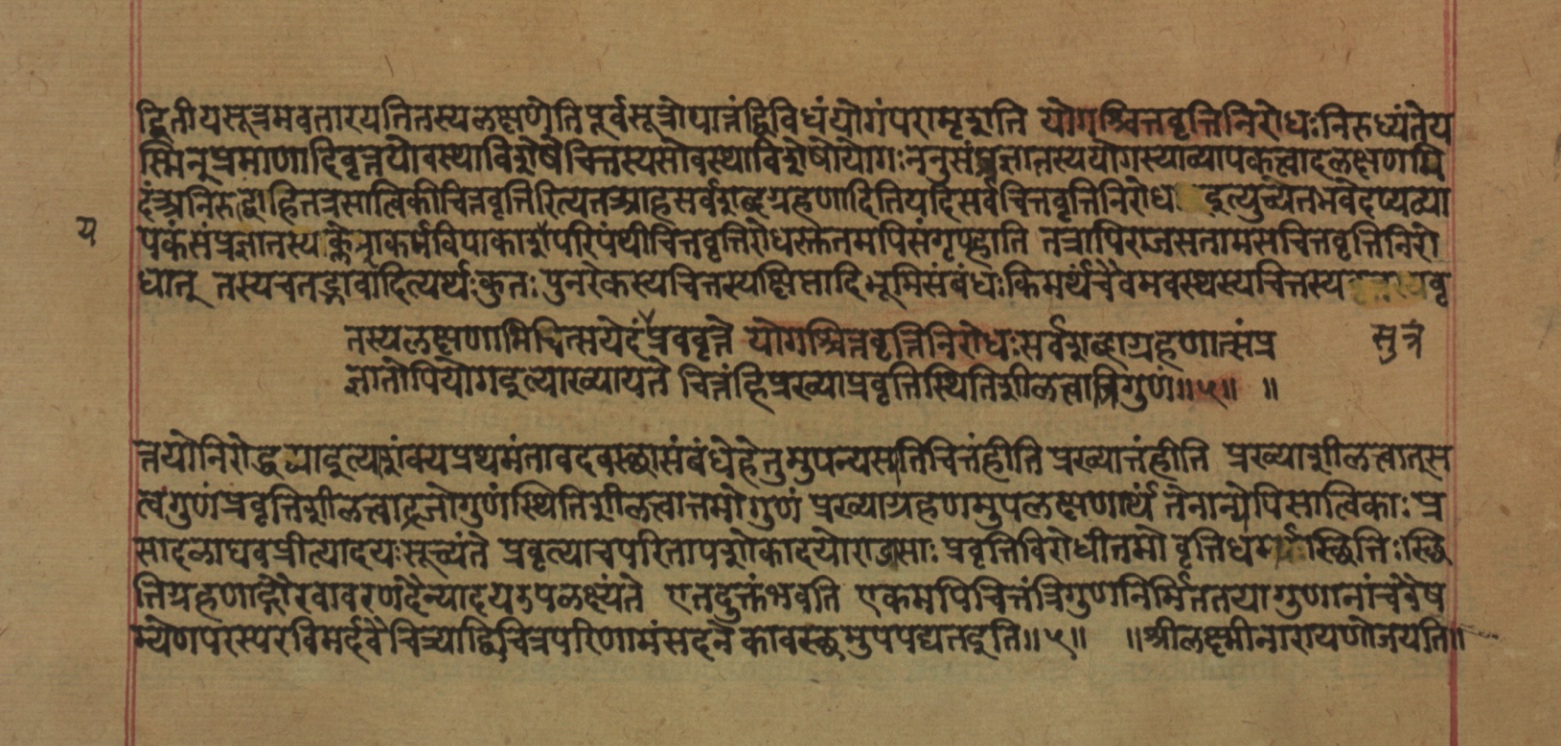 द्वितीयसूत्रमवतारयतितस्यलक्षणेतिपूर्वसूत्रोपात्तंद्विविधंयोगंपरामृशति योगश्चित्तवृत्तिनिरोधःनिरुध्यंतेय
स्मिन्प्रमाणादिवृत्तयोवस्थाविशेषेचित्तस्यसोवस्थाविशेषोयोगःननुसंप्रज्ञातस्ययोगस्याव्यापकत्वादलक्षणमि
दंअनिरुद्धाहितत्रसात्विकीचित्तवृत्तिरित्यतआहसर्वशब्दाग्रहणादितियदिसर्वचित्तवृत्तिनिरोध इत्युच्येतभवेदप्यव्या
य
पकंसंप्रज्ञातस्यक्लेशकर्मविपाकाशपरिपंथीचित्तवृत्तिरोधस्तेतमपिसंगृण्हाति तत्रापिराजसतामसचित्तवृत्तिनिरो
धात् तस्यचतद्भावादित्यर्थःकुतःपुनरेकस्यचित्तस्यक्षिप्तादिभूमिसंबंधःकिमर्थंचैवमवस्थस्यचित्तस्य वृ
तस्यलक्षणाभिदित्सयेदंप्रववृत्ते योगश्चित्तवृत्तिनिरोधःसर्वशब्दाग्रहणात्संप्र
सुत्रं
ज्ञातोपियोगइत्याख्यायते चित्तंहिप्रख्याप्रवृत्तिस्थितिशीलत्वात्रिगुणं॥५॥ ॥
त्तयोनिरोद्धव्याइत्याशंक्यप्रथमंतावदवस्थासंबंधेहेतुमुपन्यस्यतिचित्तंहीति प्रख्यात्तंहीति प्रख्याशीलत्वात्स
त्वगुणंप्रवृत्तिशीलत्वाद्रजोगुणंस्थितिशीलत्वात्तमोगुणं प्रख्याग्रहणमुपलक्षणार्थं तेनान्येपिसात्विकाः प्र
सादलाघवप्रीत्यादयःसूच्यंते प्रवृत्याचपरितापशोकादयोराजसाः प्रवृत्तिविरोधीतमो वृत्तिधर्मःस्थितिःस्थि
तिग्रहणाद्गौरवावरणंदैन्यादयउपलक्ष्यंते एतदुक्तंभवति एकमपिचित्तंत्रिगुणनिर्मिततयागुणानांचवैष
म्येणपरस्परविमर्दवैचित्र्याद्विचित्रपरिणामंसदनेकावस्थमुपपद्यतइति॥५॥ ॥श्रीलक्ष्मीनारायणोजयति॥